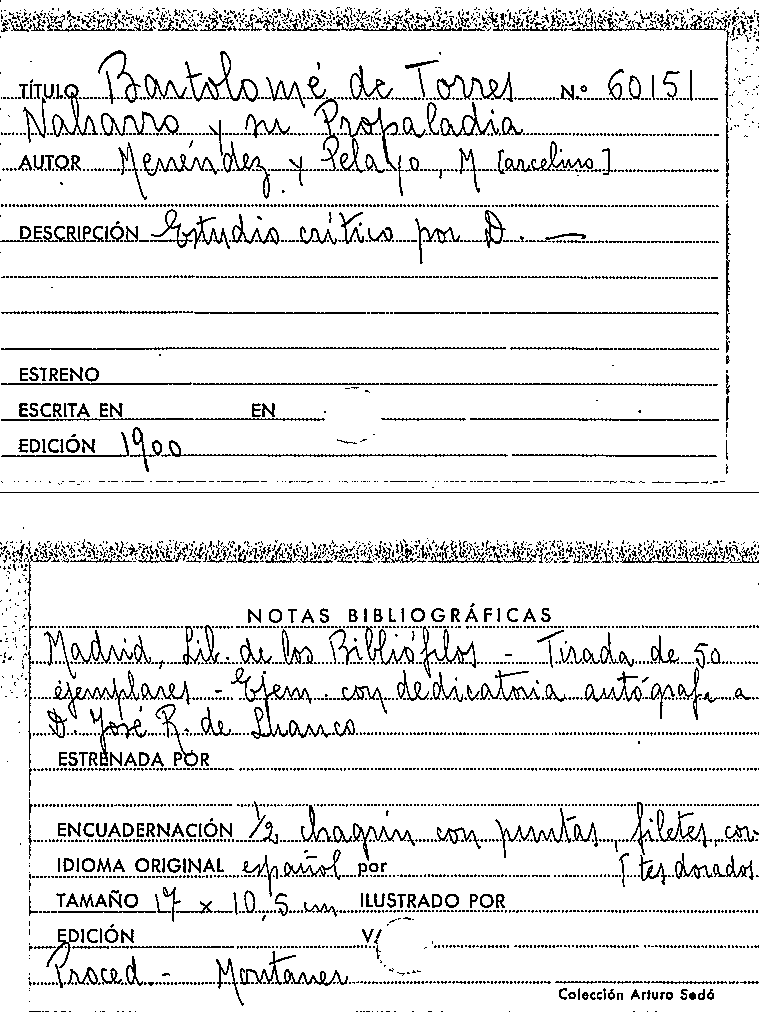 TÍTULO Bartolomé de Torres N.º 60151
Naharro y su Propaladia
AUTOR Menéndez y Pelayo, M [arcelino]
DESCRIPCIÓN Estudio crítico por D. —
ESTRENO
ESCRITA EN EN
EDICIÓN 1900
NOTAS BIBLIOGRÁFICAS
Madrid, Lib. de los Bibliófilos - Tirada de 50
ejemplares - Ejem. con dedicatoria autógrafa a
D. José R. de Lhanco
ESTRENADA POR
ENCUADERNACIÓN 1/2 chagrin con puntas, filetes, cor-
IDIOMA ORIGINAL español por [tes dorados
TAMAÑO 17 x 10,5 cm ILUSTRADO POR
EDICIÓN V/
Proced.- Montaner
Colección Arturo Sedó